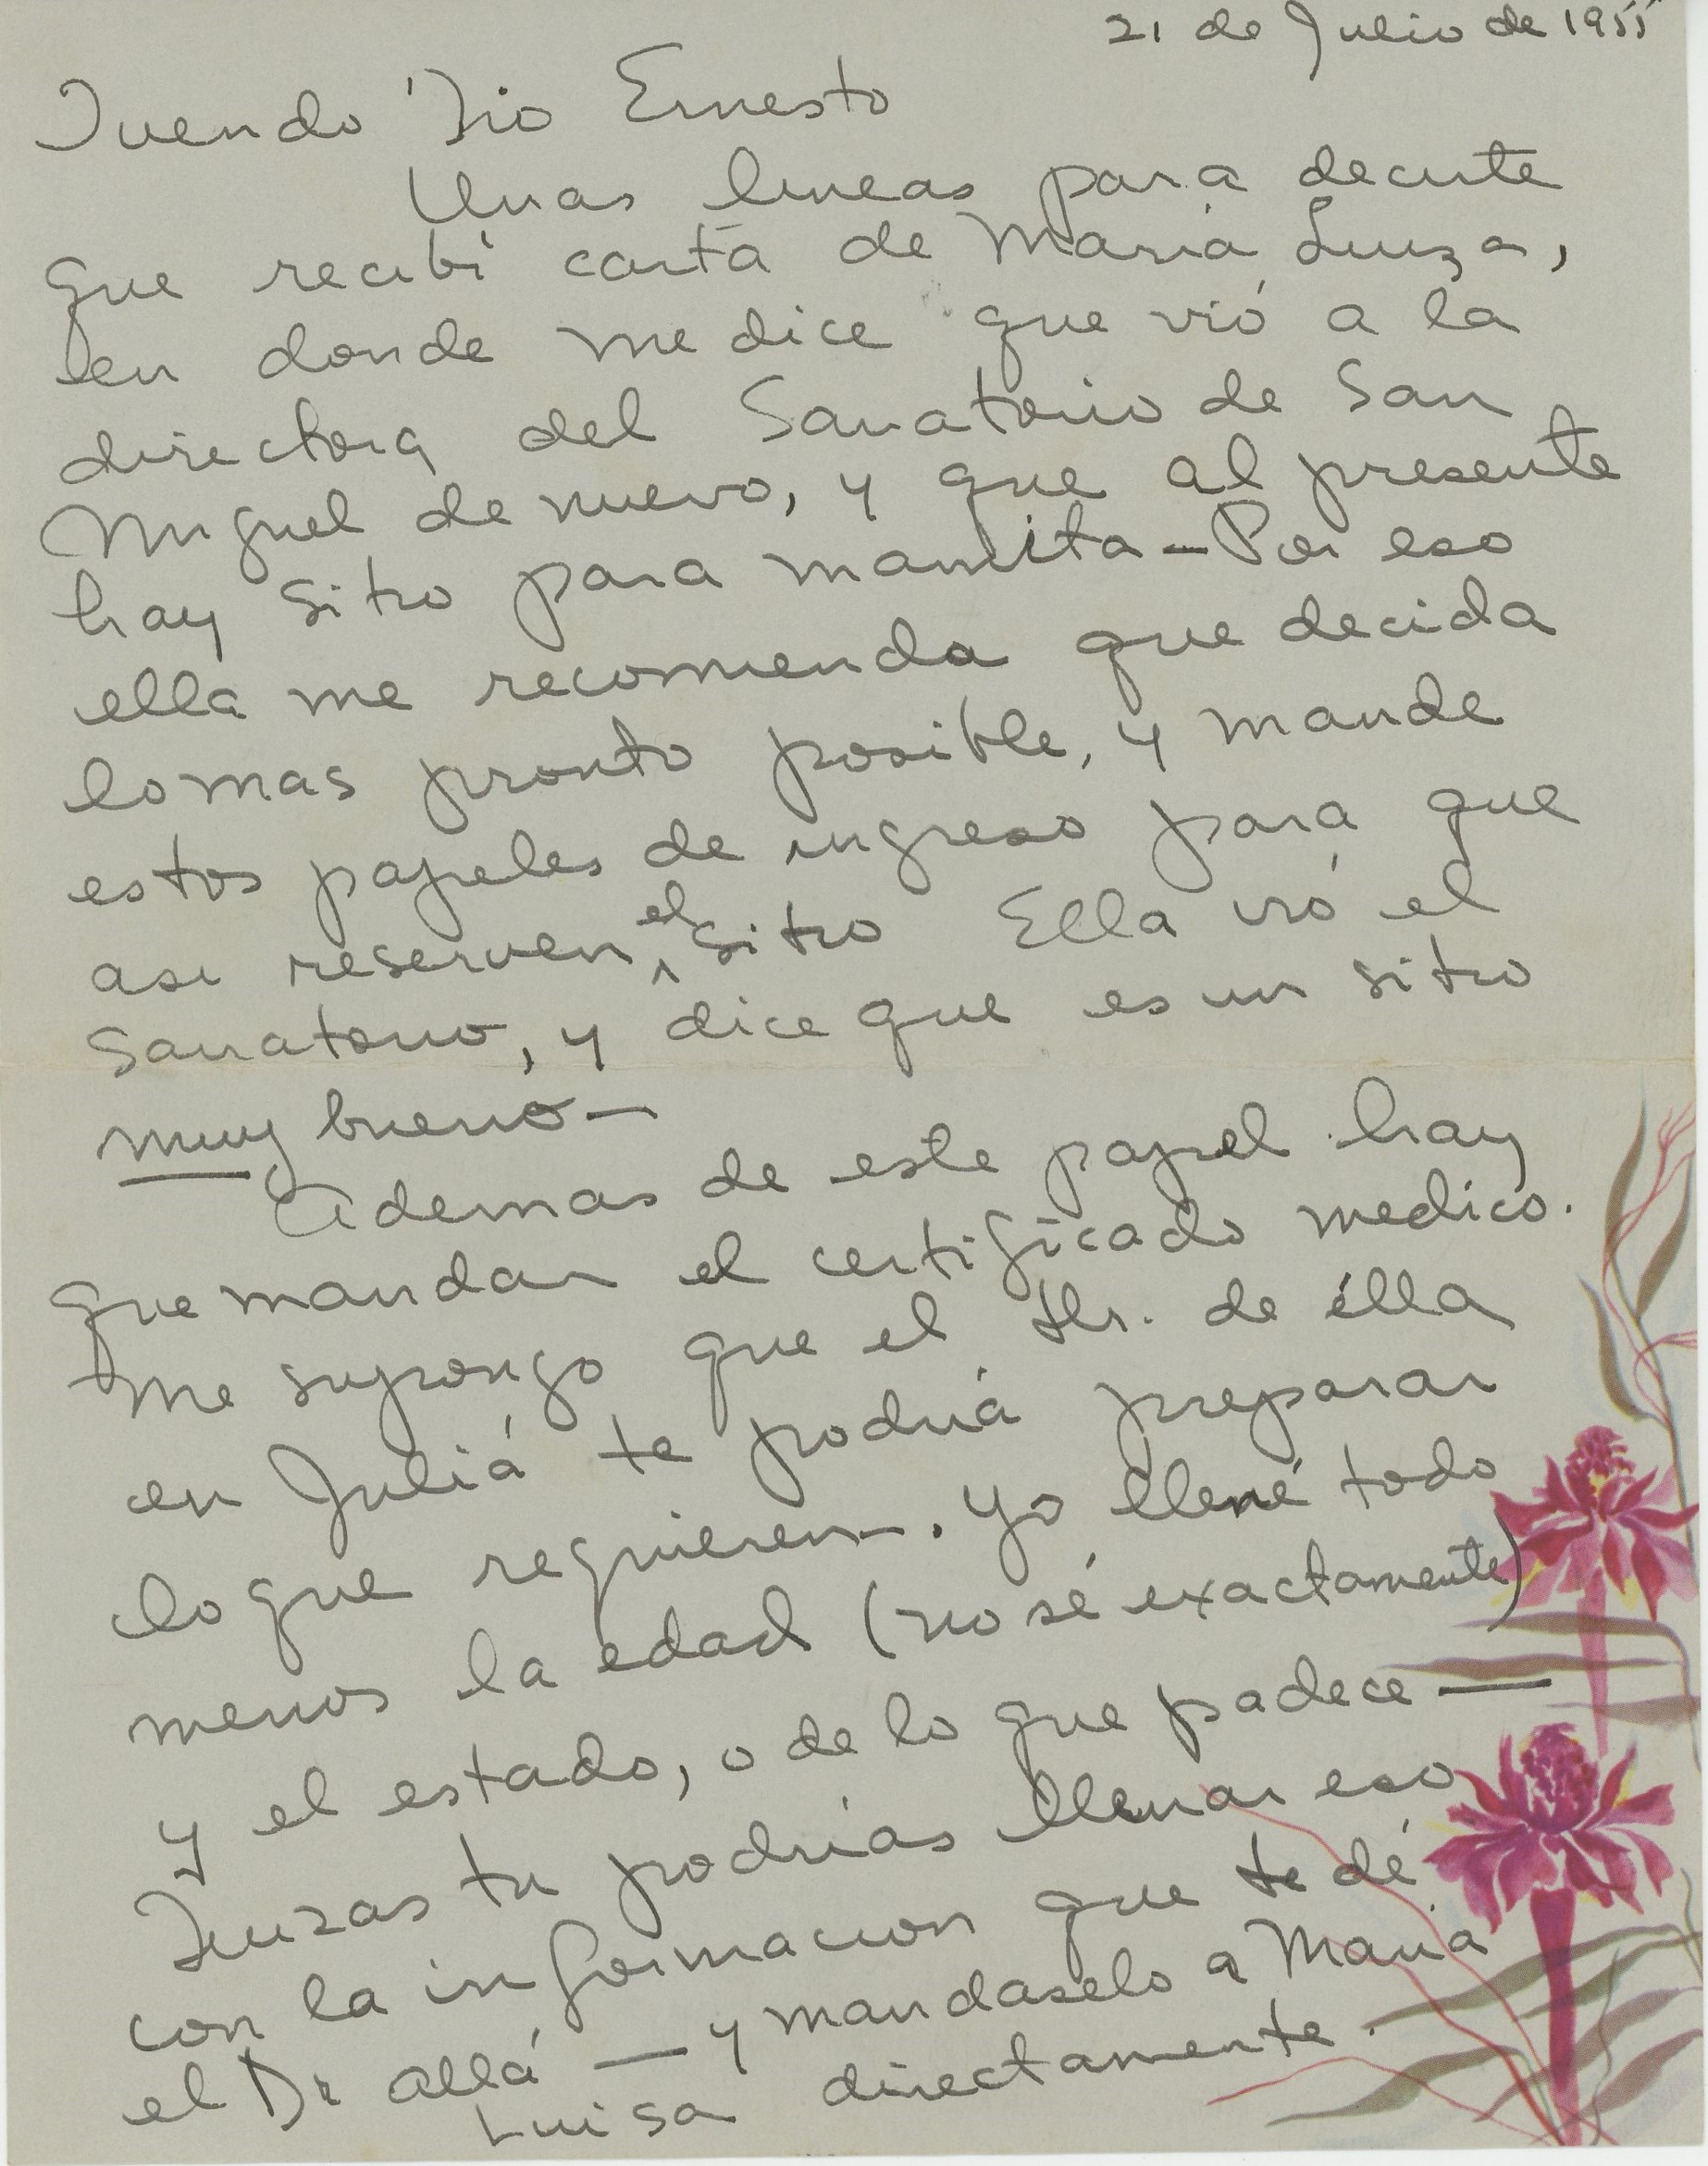 21 de Julio de 1955
Querido Tio Ernesto
Unas lineas para decirte
que recibi carta de Maria Luiza,
en donde me dice que vió a la
directora del Sanatorio de San
Miguel de nuevo, y que al presente
hay sitio para mamita — Por eso
ella me recomienda que decida
lo mas pronto posible, y mande
estos papeles de ingreso para que
asi reserven el sitio Ella vió el
Sanatorio, y dice que es un sitio
muy bueno —
Ademas de este papel hay
que mandar el certificado medico.
Me supongo que el Dr. de élla
en Juliá te podriá preparar
lo que requieren —. Yo llené todo
menos la edad (no sé exactamente)
y el estado, o de lo que padece —
Quizas tu podrias llenar eso
con la informacion que te dé
el Dr allá — y mandaselo a Maria
Luisa directamente.